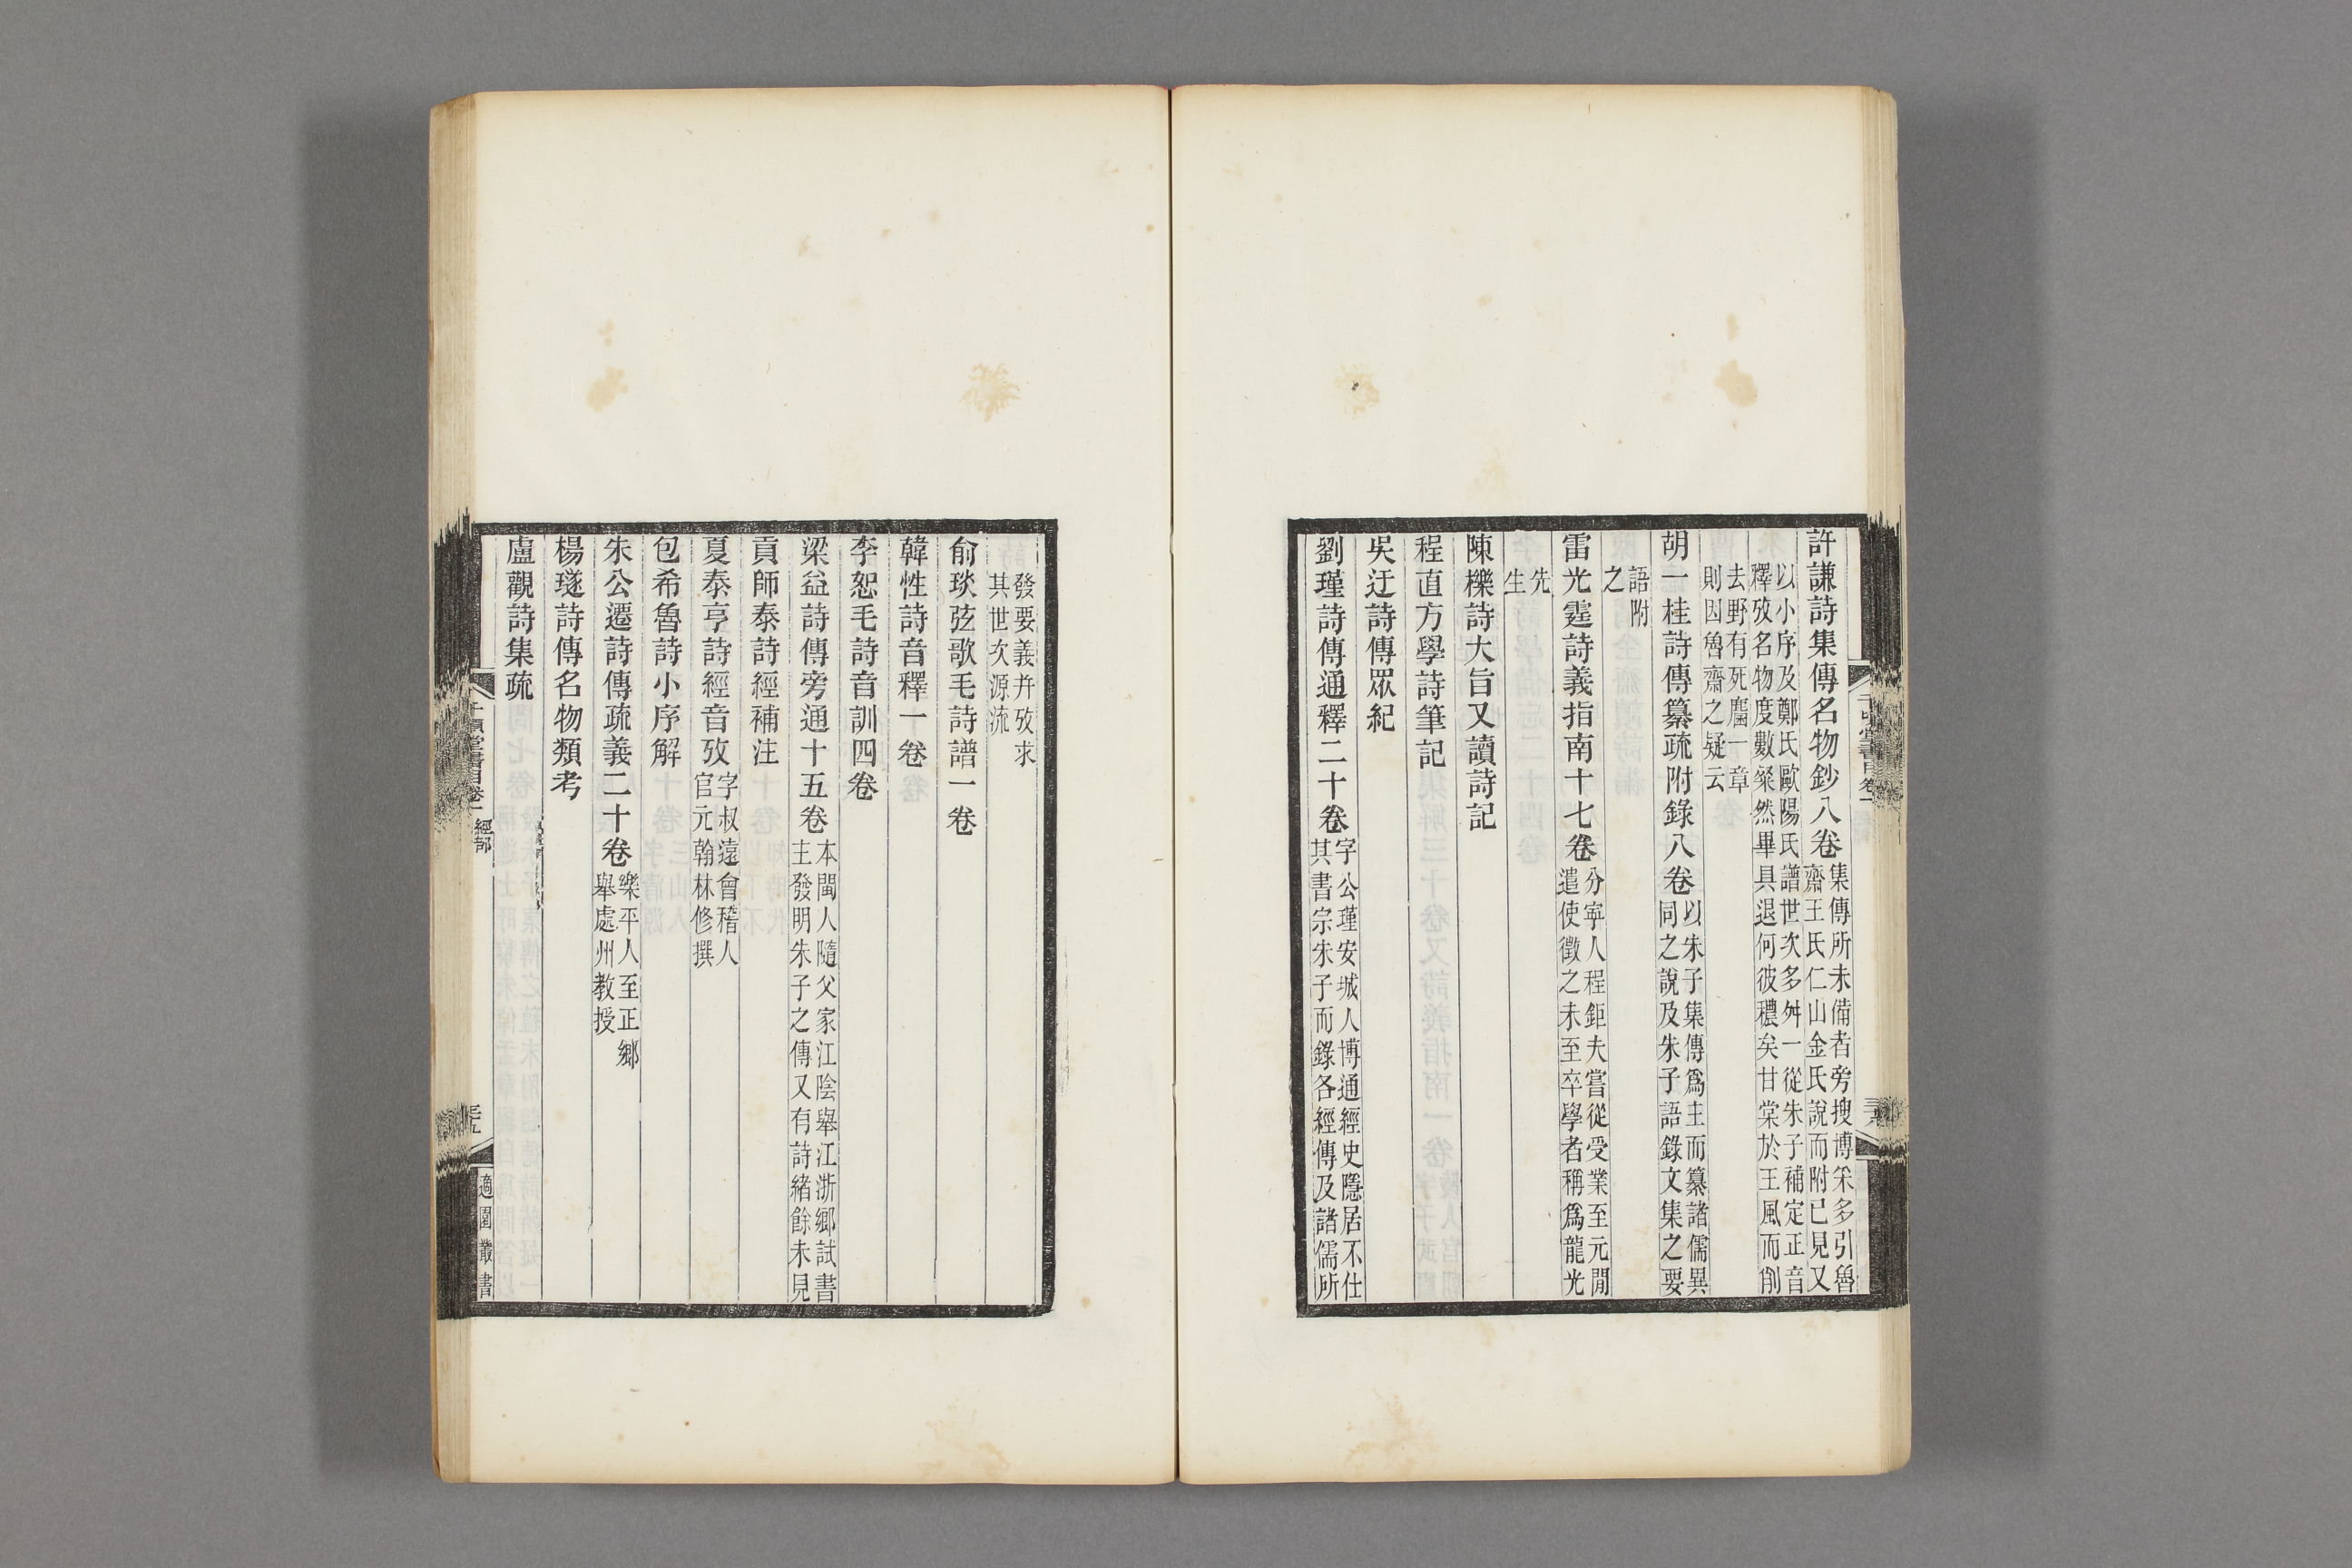 許謙詩集傳名物鈔八卷集傳所未備者旁搜博采多引魯
齋王氏仁山金氏說而附已見又
以小序及鄭氏歐陽氏譜世次多舛一從朱子補定正音
釋攷名物度數粲然畢具退何彼穠矣甘棠於王風而削
去野有死麕一章
則因魯齋之疑云
胡一桂詩傳纂疏附錄八卷以朱子集傳爲主而纂諸儒異
同之說及朱子語錄文集之要
語附
之
雷光霆詩義指南十七卷分寧人程鉅夫嘗從受業至元閒
遣使徵之未至卒學者稱爲龍光
先
生
陳櫟詩大旨又讀詩記
程直方學詩筆記
吳迂詩傳眾紀
劉瑾詩傳通釋二十卷字公瑾安城人博通經史隱居不仕
其書宗朱子而錄各經傳及諸儒所
發要義幷攷求
其世次源流
俞琰弦歌毛詩譜一卷
韓性詩音釋一卷
李恕毛詩音訓四卷
梁益詩傳旁通十五卷本閩人隨父家江陰舉江浙鄉試書
主發明朱子之傳又有詩緒餘未見
貢師泰詩經補注
夏泰亨詩經音攷字叔遠會稽人
官元翰林修撰
包希魯詩小序解
朱公遷詩傳疏義二十卷樂平人至正鄉
舉處州教授
楊璲詩傳名物類考
盧觀詩集疏
千頃堂書目卷一 經部
適園叢書